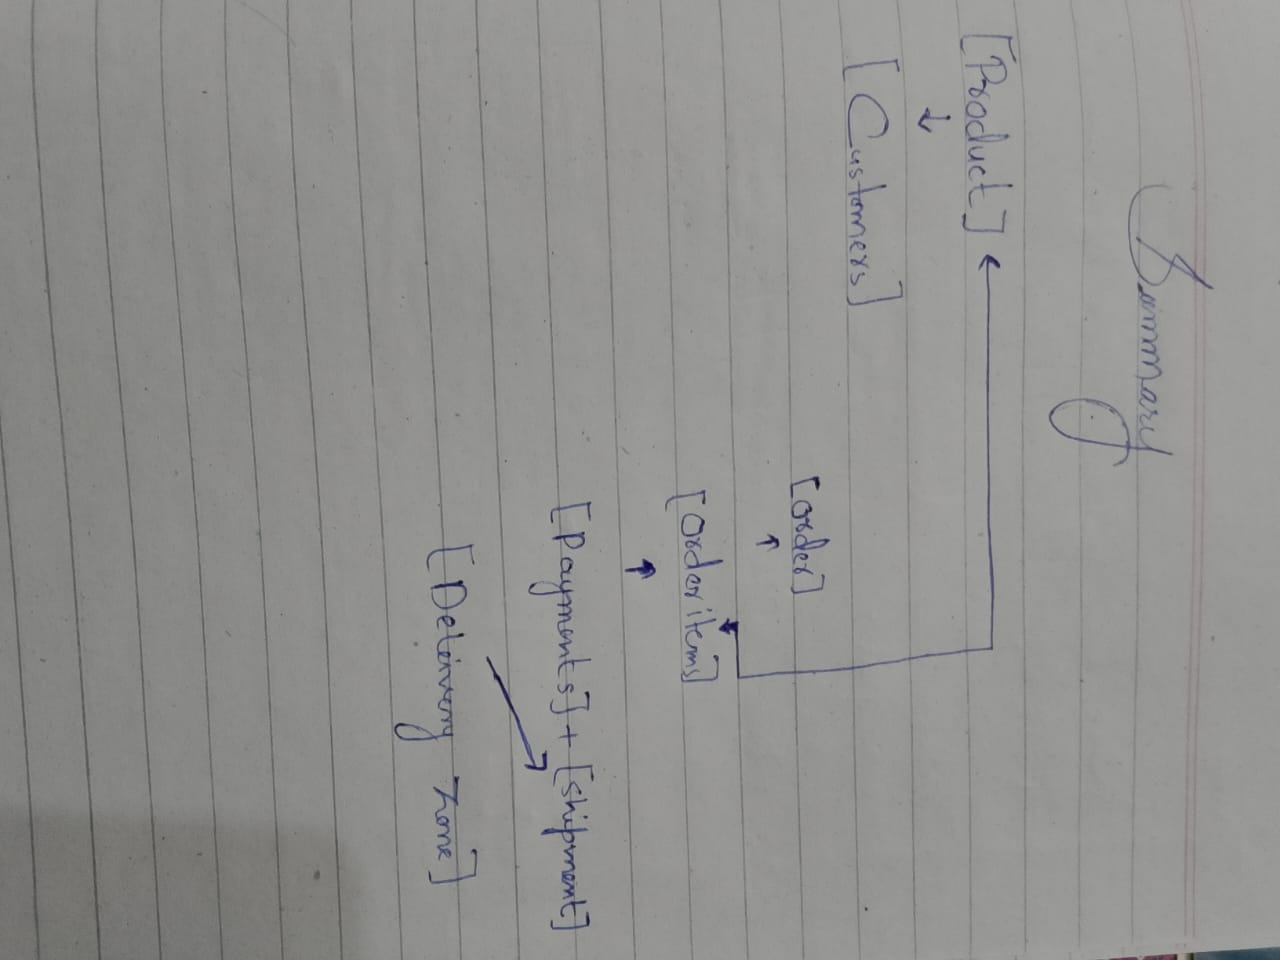 Summary
[Product]
↓
[Customers]
[order]
↑
[Order items]
↑
[Payments] + [shipment]
[Delivery Zone]